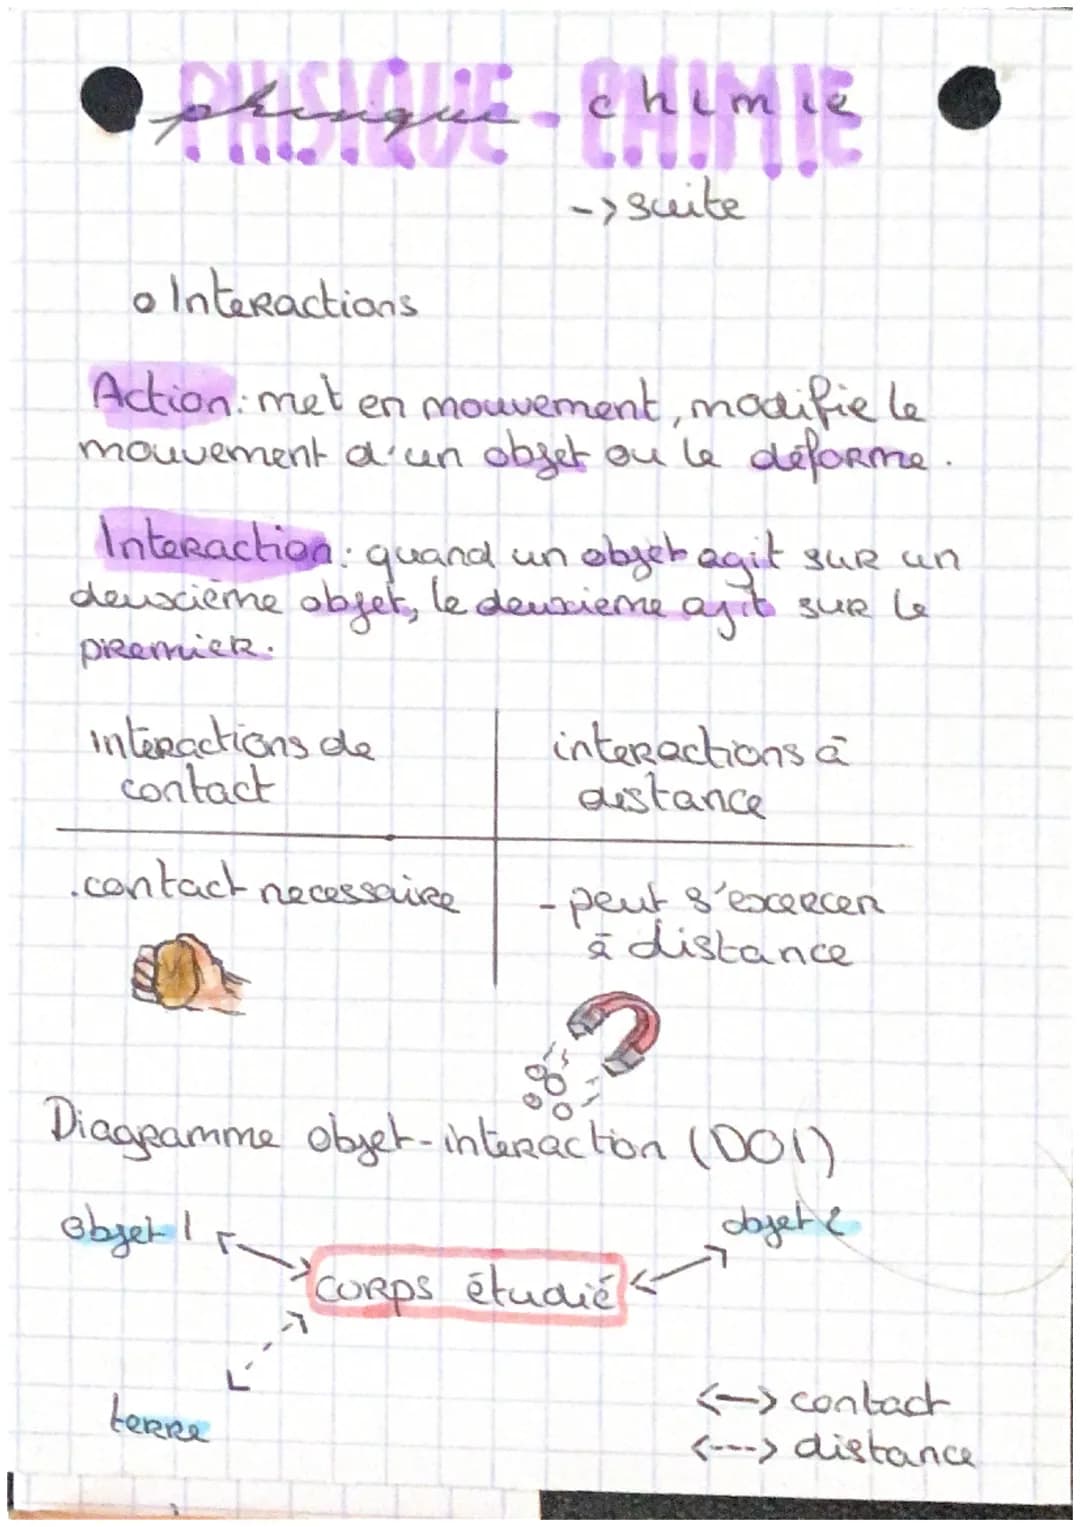 PHYSIQUE-CHIMIE
physique - chimie
-> suite
o Interactions
Action: met en mouvement, modifie le
mouvement d'un objet ou le déforme.
Interaction: quand un objet agit sur un
deuxième objet, le deuxieme agit sur le
premier.
interactions de
contact
interactions à
distance
.contact necessaire
- peut s'excercer
à distance
Diagramme objet-interaction (DOI)
objet 1
objet 2
corps étudié
terre
<-> contact
<---> distance